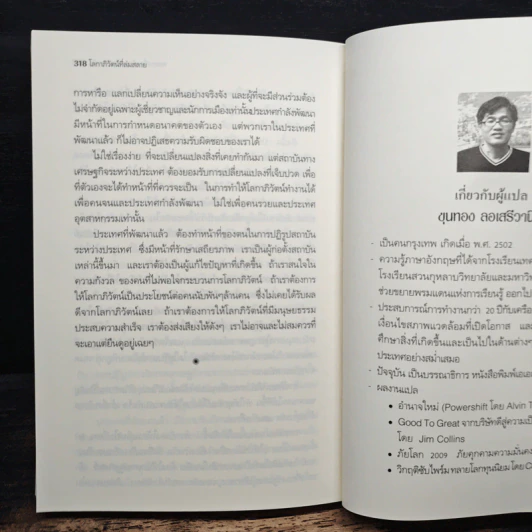 318 โลกาภิวัตน์ที่ล่มสลาย
การหารือ แลกเปลี่ยนความเห็นอย่างจริงจัง และผู้ที่จะมีส่วนร่วมต้อง
ไม่จำกัดอยู่เฉพาะผู้เชี่ยวชาญและนักการเมืองเท่านั้นประเทศกำลังพัฒนา
มีหน้าที่ในการกำหนดอนาคตของตัวเอง แต่พวกเราในประเทศที่
พัฒนาแล้ว ก็ไม่อาจปฏิเสธความรับผิดชอบของเราได้
ไม่ใช่เรื่องง่าย ที่จะเปลี่ยนแปลงสิ่งที่เคยทำกันมา แต่สถาบันทาง
เศรษฐกิจระหว่างประเทศ ต้องยอมรับการเปลี่ยนแปลงที่เจ็บปวด เพื่อ
ที่ตัวเองจะได้ทำหน้าที่ที่ควรจะเป็น ในการทำให้โลกาภิวัตน์ทำงานได้
เพื่อคนจนและประเทศกำลังพัฒนา ไม่ใช่เพื่อคนรวยและประเทศ
อุตสาหกรรมเท่านั้น
ประเทศที่พัฒนาแล้ว ต้องทำหน้าที่ของตนในการปฏิรูปสถาบัน
ระหว่างประเทศ ซึ่งมีหน้าที่รักษาเสถียรภาพ เราเป็นผู้ก่อตั้งสถาบัน
เหล่านี้ขึ้นมา และเราต้องเป็นผู้แก้ไขปัญหาที่เกิดขึ้น ถ้าเราสนใจใน
ความกังวล ของคนที่ไม่พอใจกระบวนการโลกาภิวัตน์ ถ้าเราต้องการ
ให้โลกาภิวัตน์เป็นประโยชน์ต่อคนนับพันๆล้านคน ซึ่งไม่เคยได้รับผล
ดีจากโลกาภิวัตน์เลย ถ้าเราต้องการให้โลกาภิวัตน์ที่มีมนุษยธรรม
ประสบความสำเร็จ เราต้องส่งเสียงให้ดังๆ เราไม่อาจและไม่สมควรที่
จะเอาแต่ยืนดูอยู่เฉยๆ
เกี่ยวกับผู้แปล
ขุนทอง ลอเสรีวานิ
- เป็นคนกรุงเทพ เกิดเมื่อ พ.ศ. 2502
- ความรู้ภาษาอังกฤษที่ได้จากโรงเรียนเทพ
โรงเรียนสวนกุหลาบวิทยาลัยและมหาวิ
ช่วยขยายพรมแดนแห่งการเรียนรู้ ออกไป
- ประสบการณ์การทำงานกว่า 20 ปีกับเครือ
เงื่อนไขสภาพแวดล้อมที่เปิดโอกาส และ
ศึกษาสิ่งที่เกิดขึ้นและเป็นไปในด้านต่างๆ
ประเทศอย่างสม่ำเสมอ
- ปัจจุบัน เป็นบรรณาธิการ หนังสือพิมพ์เอเอ
- ผลงานแปล
• อำนาจใหม่ (Powershift โดย Alvin T
• Good To Great จากบริษัทดีสู่ความเป็
โดย Jim Collins
• ภัยโลก 2009 ภัยคุกคามความมั่นคง
• วิกฤติซับไพร์ม ทลายโลกทุนนิยม โดย C